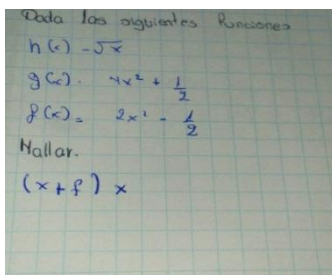 Dada las siguientes Funciones
h(x) = √x
g(x). 4x² + 1/2
f(x) = 2x² - 1/2
Hallar.
(x + f) x